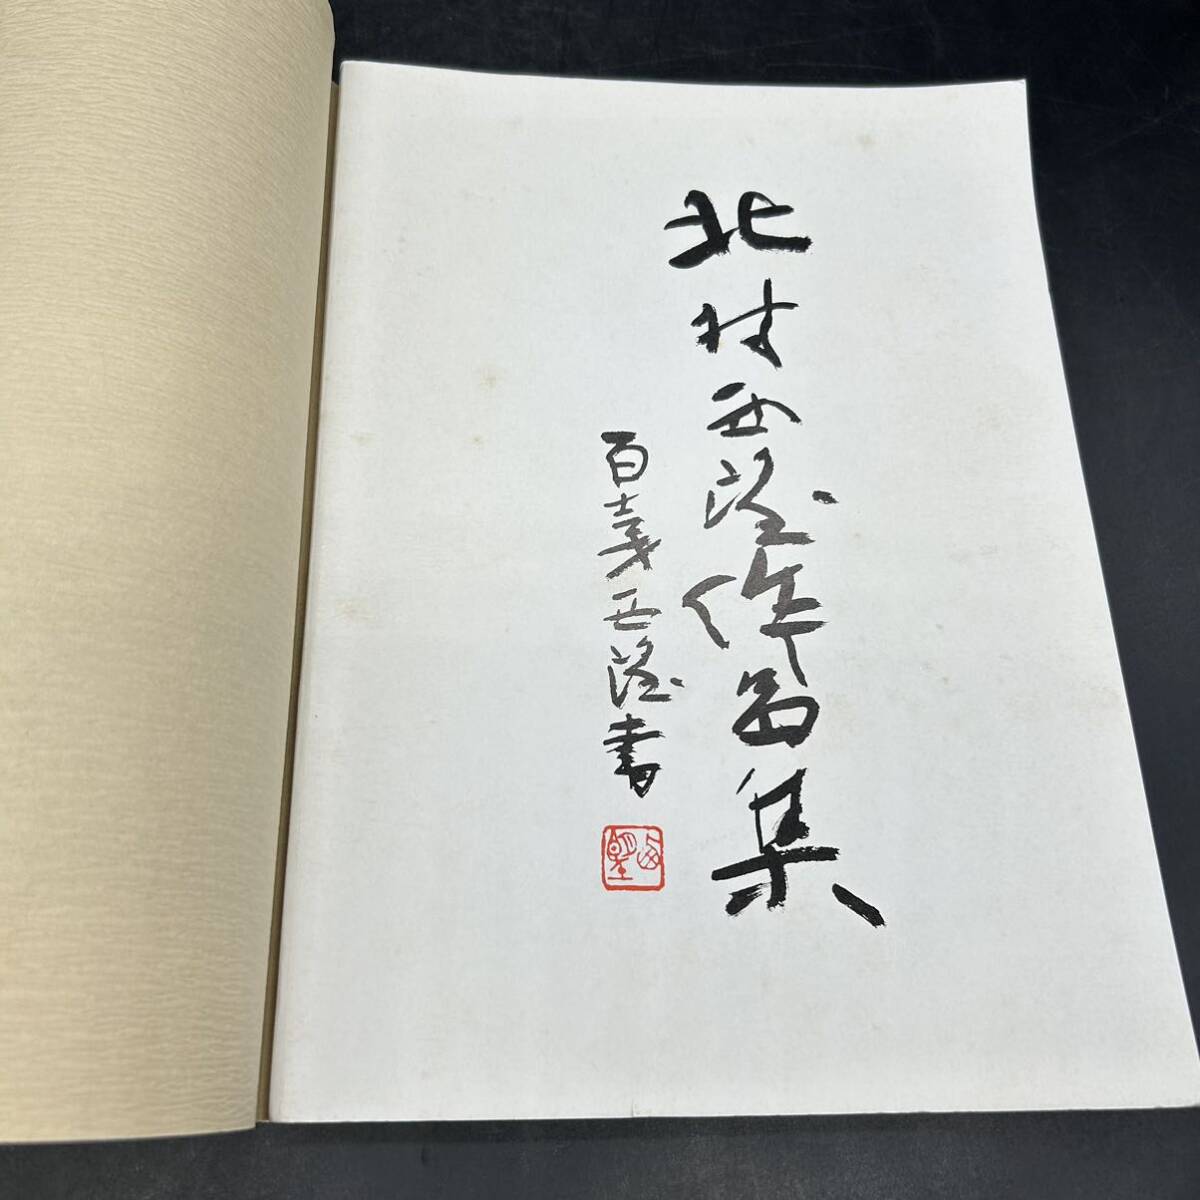 北村西望作品集
百 西望書
西望